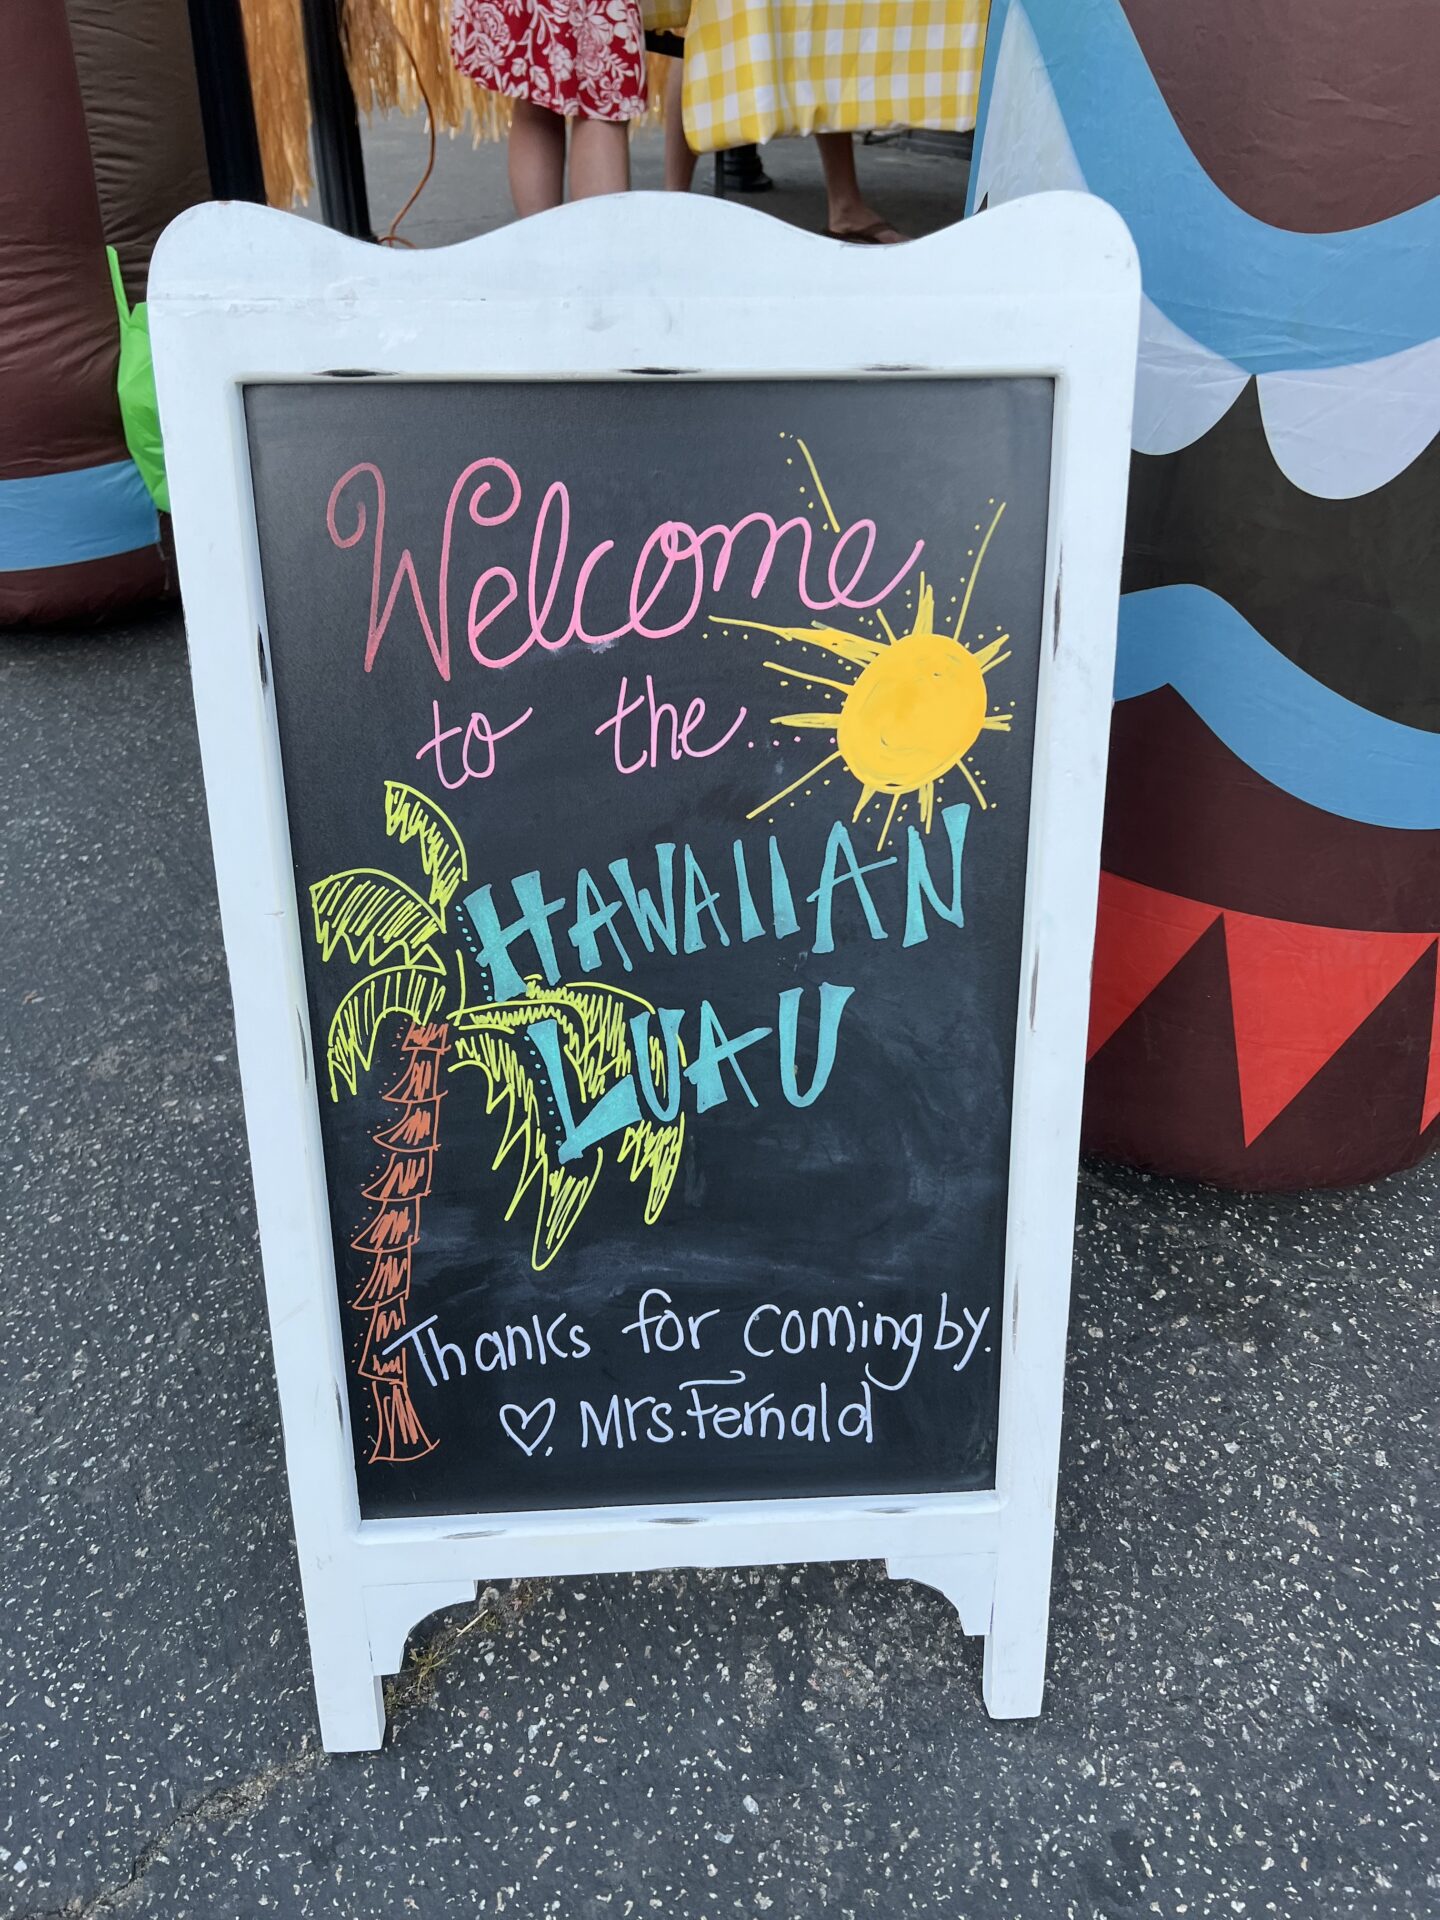 Welcome
to the....
HAWAIIAN
LUAU
Thanks for coming by.
♡, Mrs. Fernald